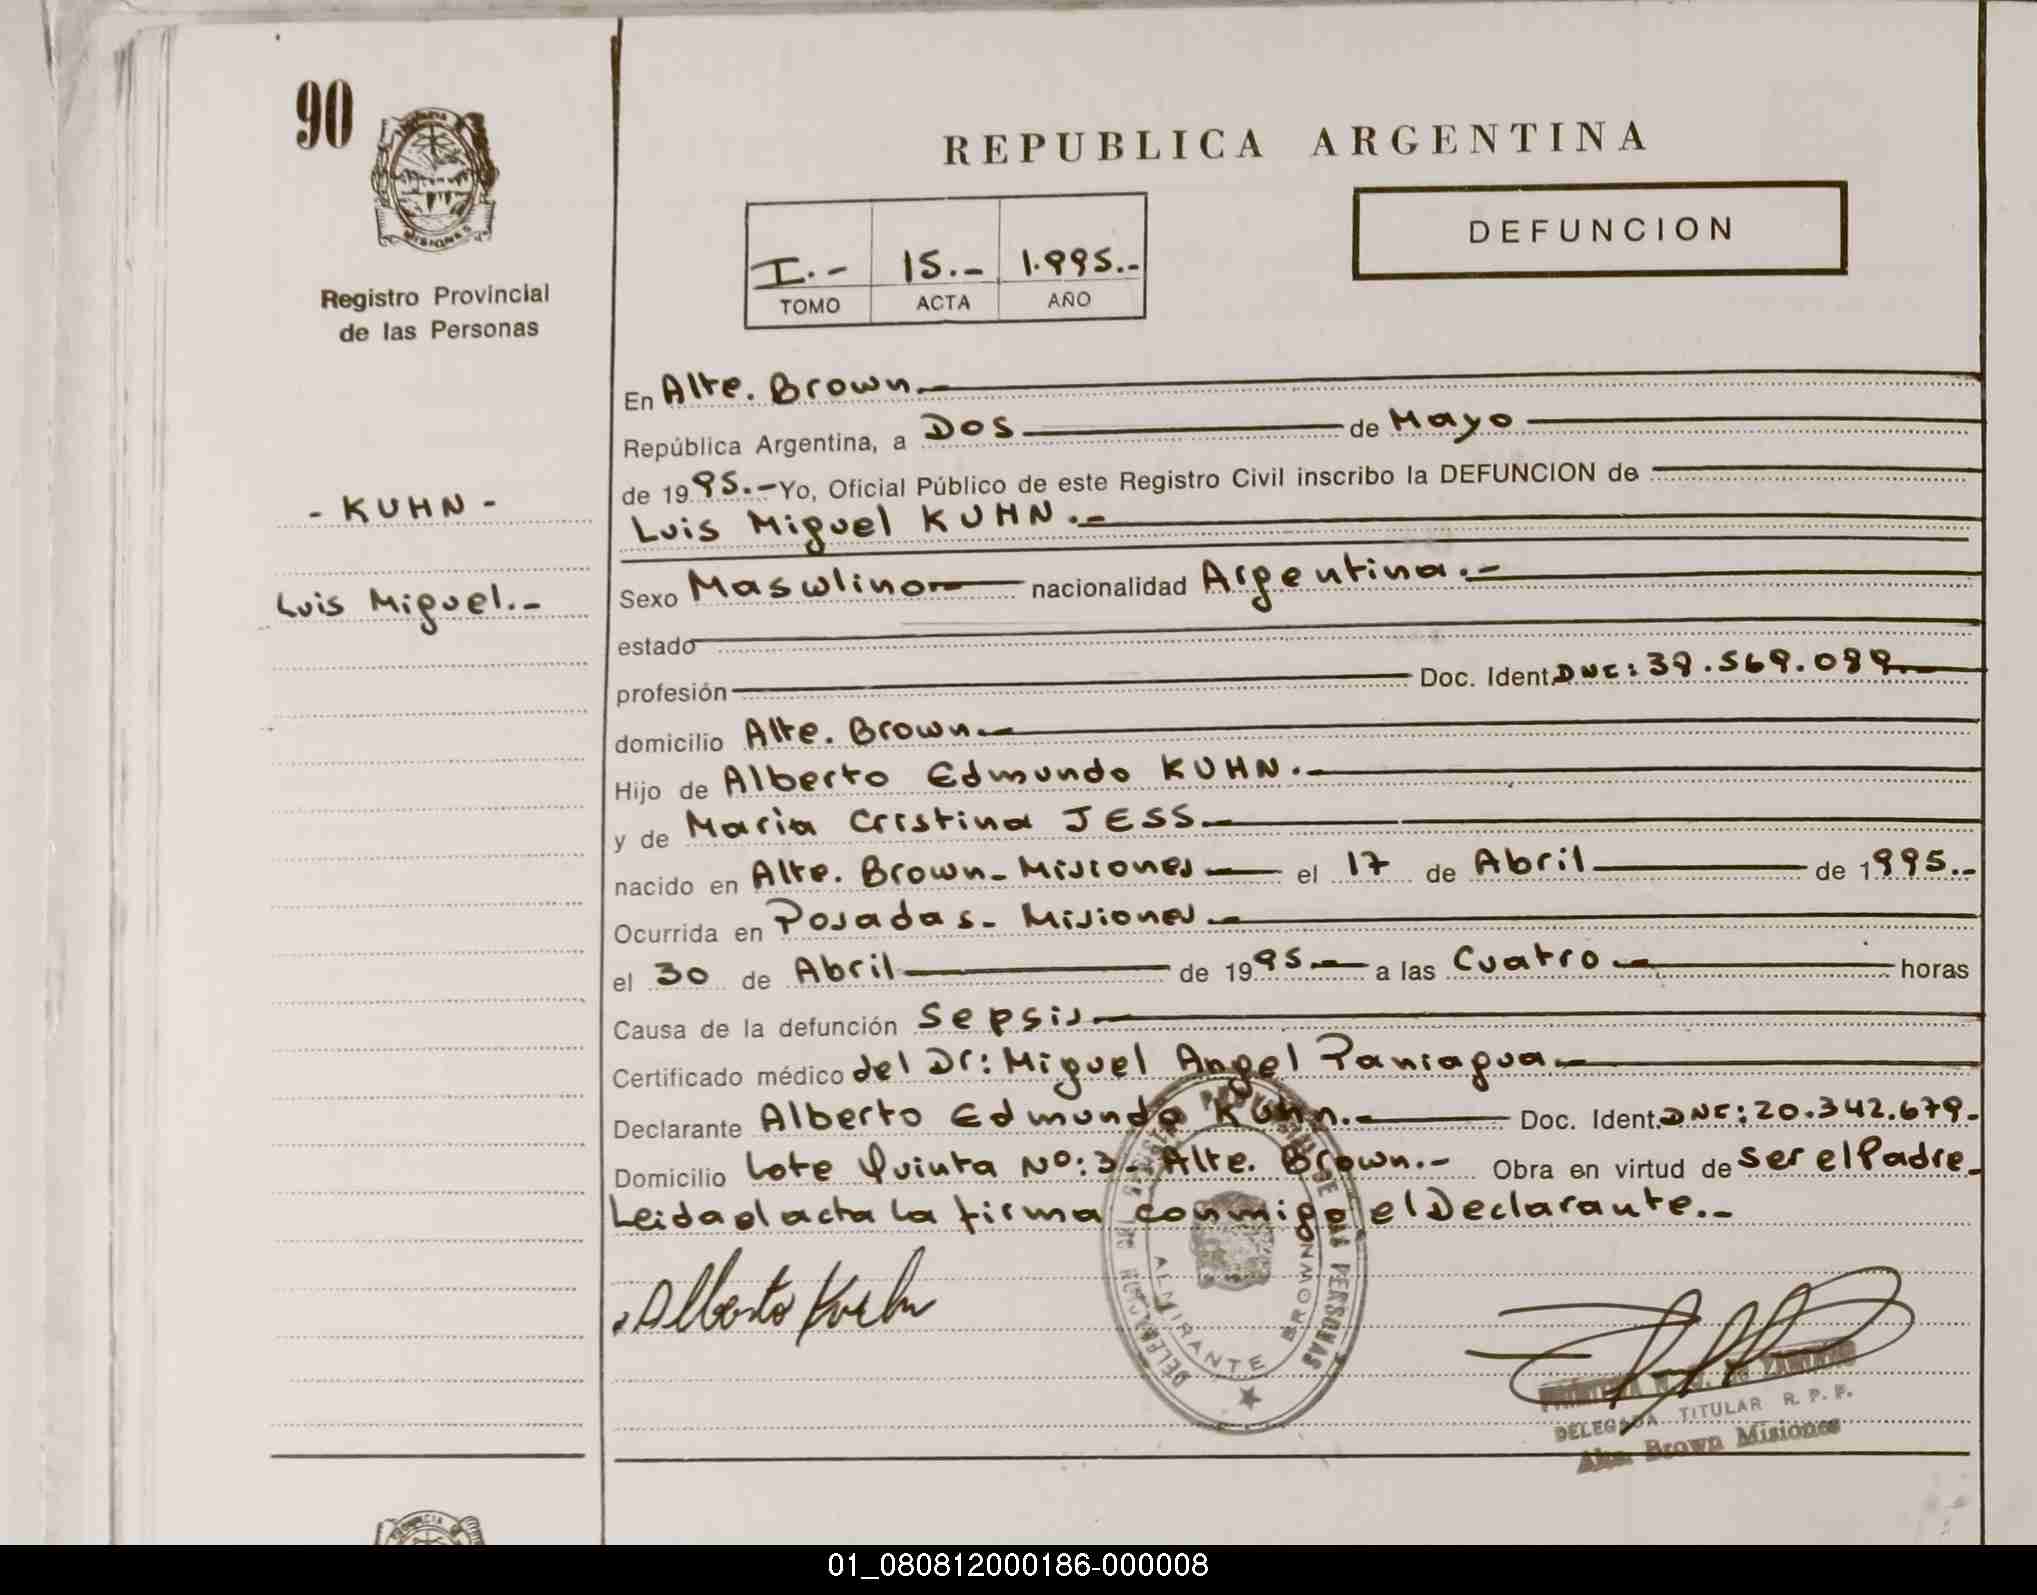 90
MISIONES
Registro Provincial
de las Personas
- KUHN -
Luis Miguel.-
REPUBLICA ARGENTINA
DEFUNCION
I.- 15.- 1.995.-
TOMO ACTA AÑO
En Alte. Brown.
República Argentina, a Dos de Mayo
de 1995.- Yo, Oficial Público de este Registro Civil inscribo la DEFUNCION de
Luis Miguel KUHN.-
Sexo Masculino nacionalidad Argentina.-
estado
profesión Doc. Ident. DNI: 39.569.089
domicilio Alte. Brown.
Hijo de Alberto Edmundo KUHN.-
y de Maria Cristina JESS.
nacido en Alte. Brown- Misiones el 17 de Abril de 1995.-
Ocurrida en Posadas- Misiones.
el 30 de Abril de 1995 a las Cuatro horas
Causa de la defunción Sepsis
Certificado médico del Dr: Miguel Angel Paniagua
Declarante Alberto Edmundo Kuhn.- Doc. Ident. DNI: 20.342.679.
Domicilio Lote Quinta Nº: 3- Alte. Brown.- Obra en virtud de ser el Padre.
Leida el acta la firma conmigo el Declarante.-
Alberto Kuhn
ALMIRANTE BROWN
DE LAS PERSONAS
DELEGADA TITULAR R. P. P.
Alte. Brown Misiones
01_080812000186-000008